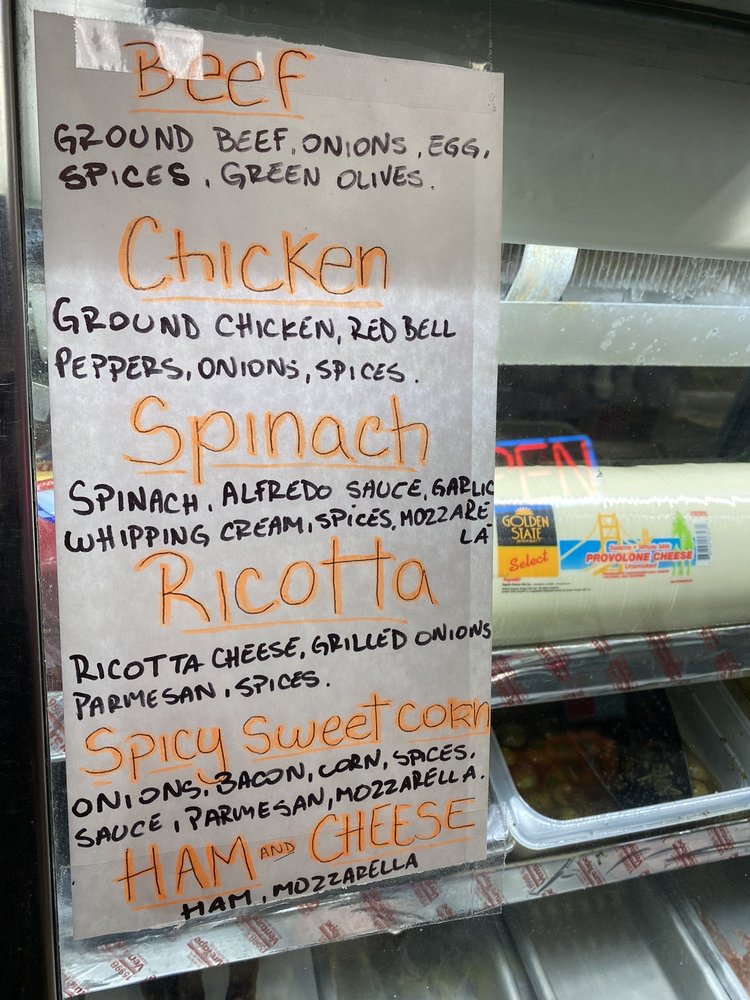 Beef
GROUND BEEF, ONIONS, EGG,
SPICES, GREEN OLIVES.
Chicken
GROUND CHICKEN, RED BELL
PEPPERS, ONIONS, SPICES.
Spinach
SPINACH, ALFREDO SAUCE, GARLIC
WHIPPING CREAM, SPICES, MOZZARE-
LA
Ricotta
RICOTTA CHEESE, GRILLED ONIONS
PARMESAN, SPICES.
Spicy Sweet CORN
ONIONS, BACON, CORN, SPICES,
SAUCE, PARMESAN, MOZZARELLA.
HAM AND CHEESE
HAM, MOZZARELLA
PEN
GOLDEN
STATE
Select
PROVOLONE CHEESE